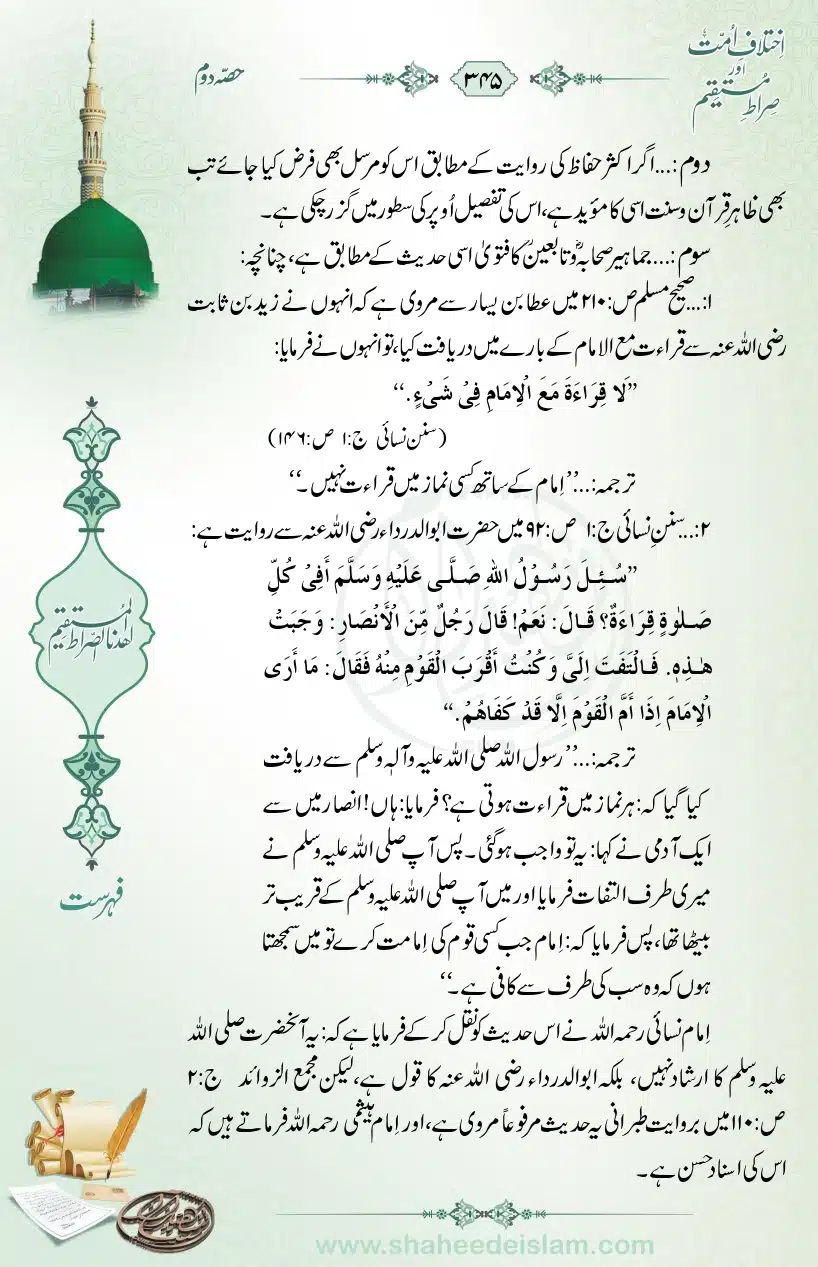 اِختلافِ اُمّت
اور
صِراطِ مُستقیم
۳۴۵
حصّہ دوم
دوم:...اگر اکثر حفاظ کی روایت کے مطابق اس کو مرسل بھی فرض کیا جائے تب
بھی ظاہرِ قرآن و سنت اسی کا مؤید ہے، اس کی تفصیل اُوپر کی سطور میں گزر چکی ہے۔
سوم:...جماہیر صحابہؓ و تابعینؒ کا فتویٰ اسی حدیث کے مطابق ہے، چنانچہ:
۱:...صحیح مسلم ص:۲۱۰ میں عطا بن یسار سے مروی ہے کہ انہوں نے زید بن ثابت
رضی اللہ عنہ سے قراءت مع الامام کے بارے میں دریافت کیا، تو انہوں نے فرمایا:
”لَا قِرَاءَةَ مَعَ الْاِمَامِ فِیْ شَیْءٍ.“
(سنن نسائی ج:۱ ص:۱۴۶)
ترجمہ:...”اِمام کے ساتھ کسی نماز میں قراءت نہیں۔“
۲:...سننِ نسائی ج:۱ ص:۹۲ میں حضرت ابوالدرداء رضی اللہ عنہ سے روایت ہے:
”سُئِلَ رَسُوْلُ اللهِ صَلَّی عَلَیْهِ وَسَلَّمَ أَفِیْ كُلِّ
صَلٰوةٍ قِرَاءَةٌ؟ قَالَ: نَعَمْ! قَالَ رَجُلٌ مِّنَ الْأَنْصَارِ: وَجَبَتْ
هٰذِهٖ. فَالْتَفَتَ اِلَیَّ وَكُنْتُ أَقْرَبَ الْقَوْمِ مِنْهُ فَقَالَ: مَا أَرَی
الْاِمَامَ اِذَا أَمَّ الْقَوْمَ اِلَّا قَدْ كَفَاهُمْ.“
ترجمہ:...”رسول اللہ صلی اللہ علیہ وآلہٖ وسلم سے دریافت
کیا گیا کہ: ہر نماز میں قراءت ہوتی ہے؟ فرمایا: ہاں! انصار میں سے
ایک آدمی نے کہا: یہ تو واجب ہوگئی۔ پس آپ صلی اللہ علیہ وسلم نے
میری طرف التفات فرمایا اور میں آپ صلی اللہ علیہ وسلم کے قریب تر
بیٹھا تھا، پس فرمایا کہ: اِمام جب کسی قوم کی اِمامت کرے تو میں سمجھتا
ہوں کہ وہ سب کی طرف سے کافی ہے۔“
اِمام نسائی رحمہ اللہ نے اس حدیث کو نقل کرکے فرمایا ہے کہ: یہ آنحضرت صلی اللہ
علیہ وسلم کا ارشاد نہیں، بلکہ ابوالدرداء رضی اللہ عنہ کا قول ہے، لیکن مجمع الزوائد ج:۲
ص:۱۱۰ میں بروایت طبرانی یہ حدیث مرفوعاً مروی ہے، اور اِمام ہیثمی رحمہ اللہ فرماتے ہیں کہ
اس کی اسناد حسن ہے۔
اهدنا الصراط المستقیم
فہرست
www.shaheedeislam.com